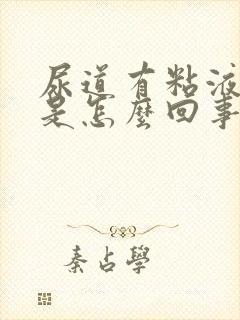 尿道有粘液
是怎麽回事
秦占學